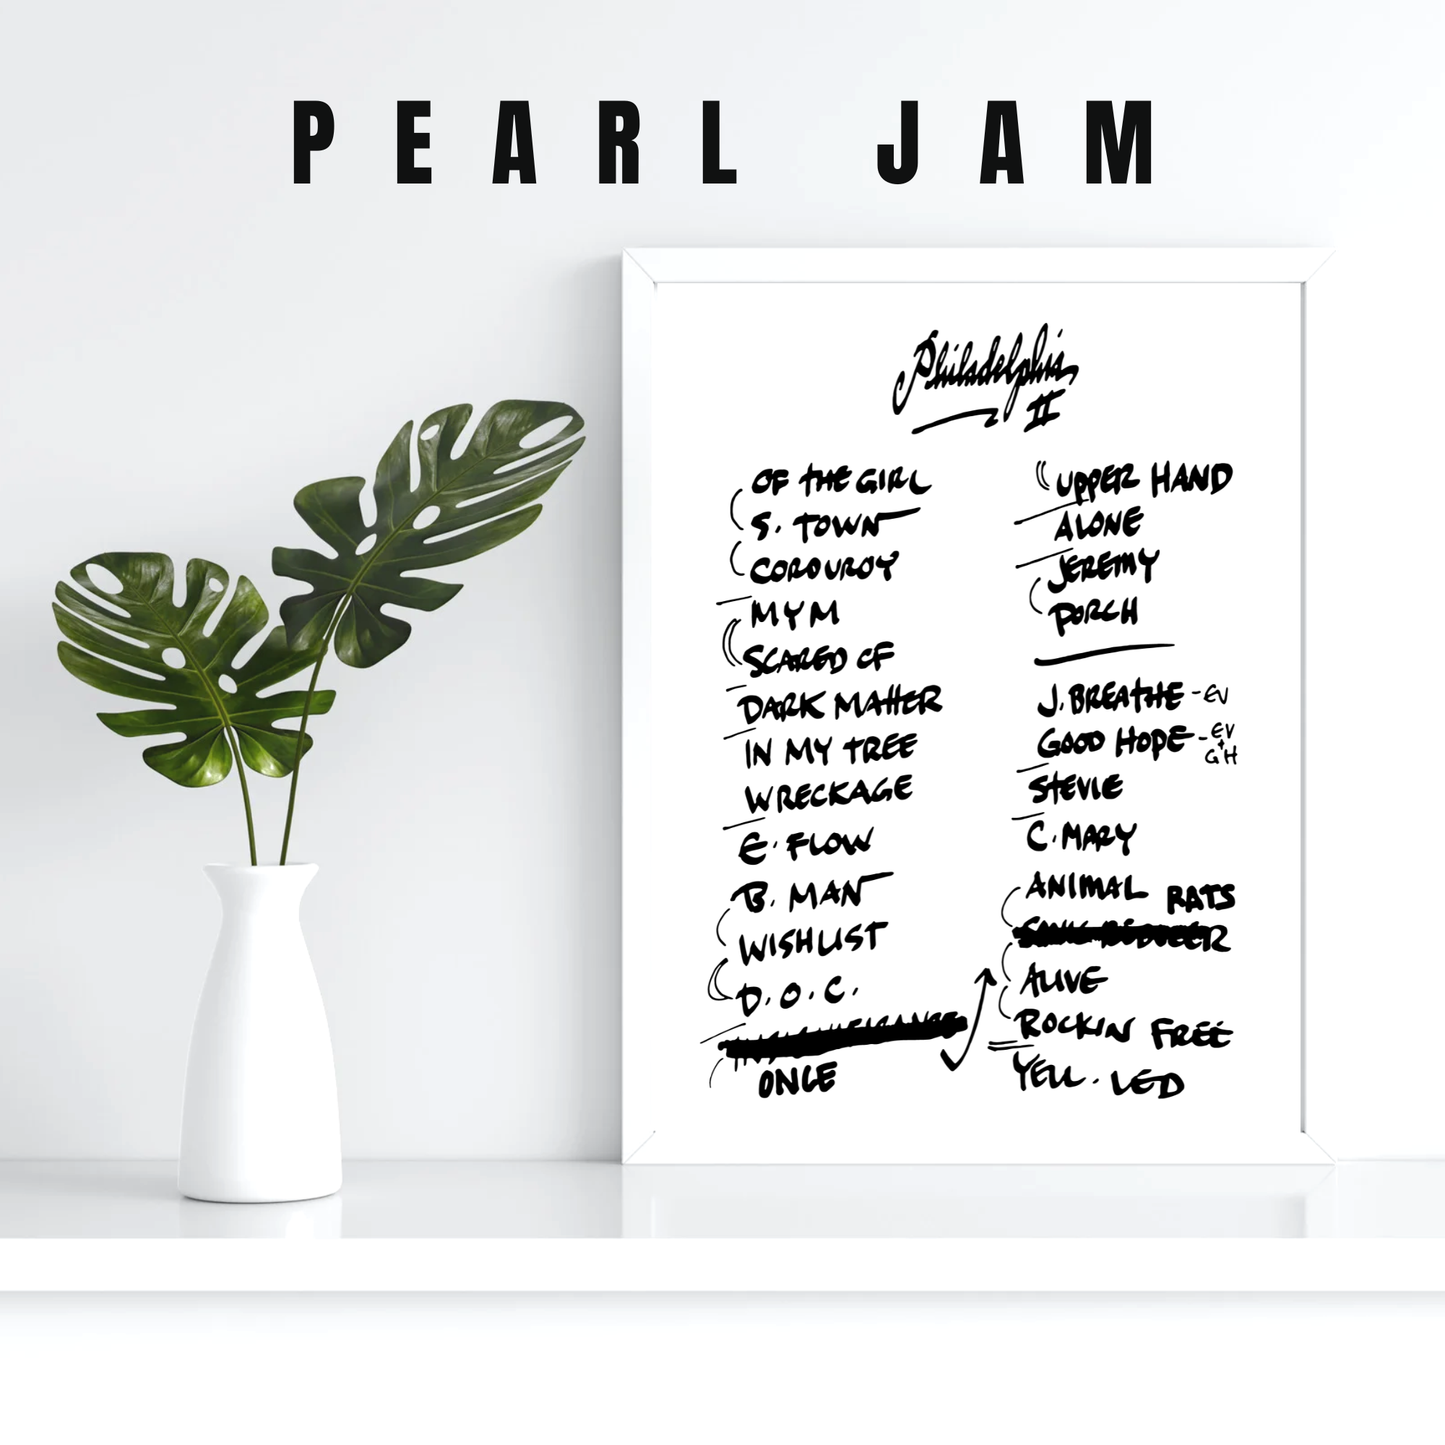 PEARL JAM
Philadelphia
II
OF THE GIRL
S. TOWN
CORDUROY
MYM
SCARED OF
DARK MATTER
IN MY TREE
WRECKAGE
E. FLOW
B. MAN
WISHLIST
D.O.C.
INSIGNIFICANCE
ONCE
UPPER HAND
ALONE
JEREMY
PORCH
J. BREATHE - EV
GOOD HOPE - EV
+
GH
STEVIE
C. MARY
ANIMAL
RATS
SONIC REDUCER
ALIVE
ROCKIN FREE
YELL. LED